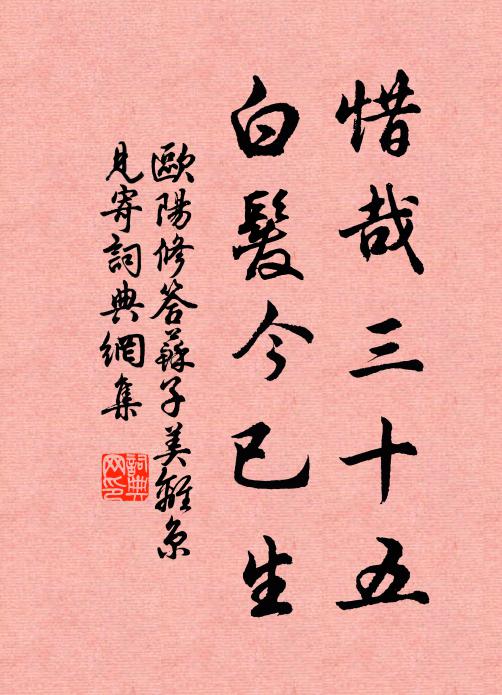 惜哉三十五
白髮今已生
歐陽修答蘇子美離京
見寄詞典網集
詞典網印